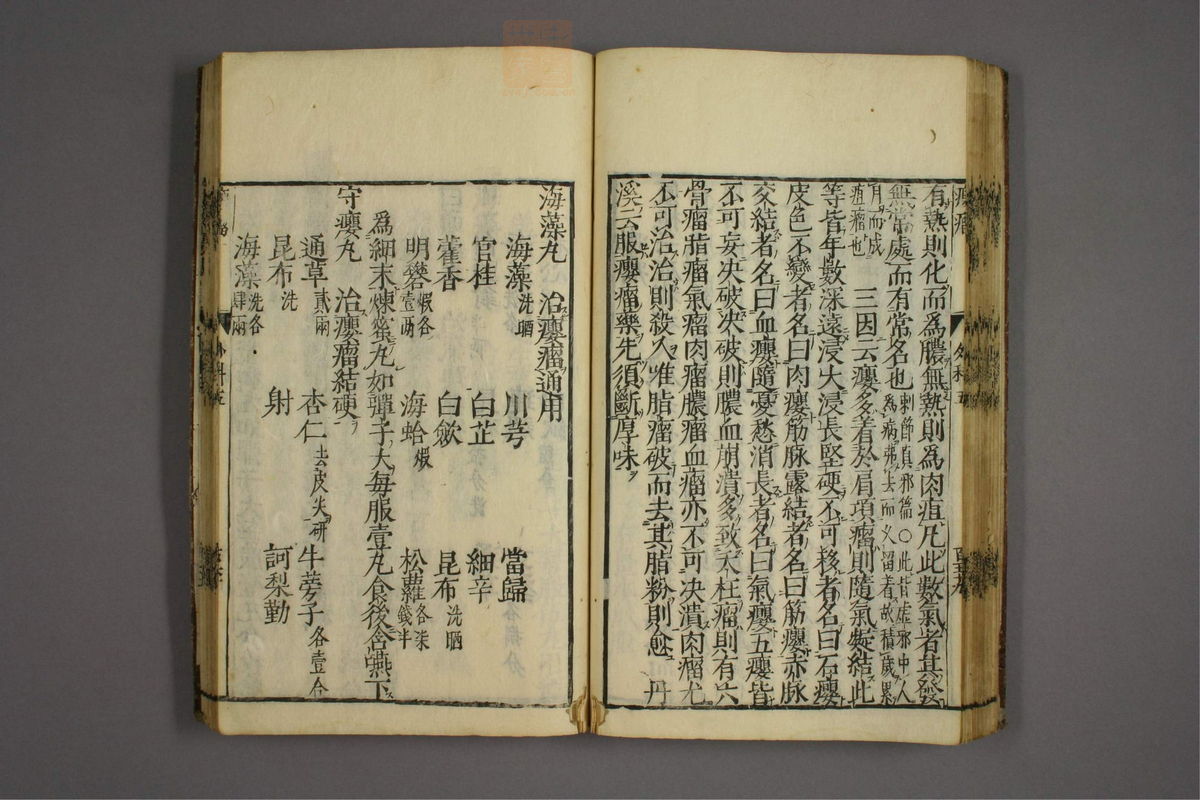 癭瘤
有熱則化而爲膿無熱則爲肉疽凡此數氣者其發
無常處而有常名也刺節眞邪篇○此皆虛邪中人爲病邪去而久留者故積歲累
月而成疽瘤也　三因云癭多着於肩項瘤則隨氣凝結此
等皆年數深遠浸大浸長堅硬不可移者名曰石癭
皮色不變者名曰肉癭筋脉露結者名曰筋癭赤脉
交結者名曰血癭隨憂愁消長者名曰氣癭五癭皆
不可妄决破决破則膿血崩潰多致夭枉瘤則有六
骨瘤脂瘤氣瘤肉瘤膿瘤血瘤亦不可决潰肉瘤尤
不可治治則殺人唯脂瘤破而去其脂粉則愈　丹
溪云服癭瘤藥先須斷厚味
海藻丸　治癭瘤通用
海藻洗晒　川芎　當歸
官桂　白芷　細辛
藿香　白歛　昆布洗晒
明礬煆各壹兩　海蛤煆　松蘿各柒錢半
爲細末煉蜜丸如彈子大每服壹丸食後含嚥下
守癭丸　治癭瘤結硬
通草貳兩　杏仁去皮尖研　牛蒡子各壹合
昆布洗　射　訶梨勤
海藻洗各肆兩
外科五